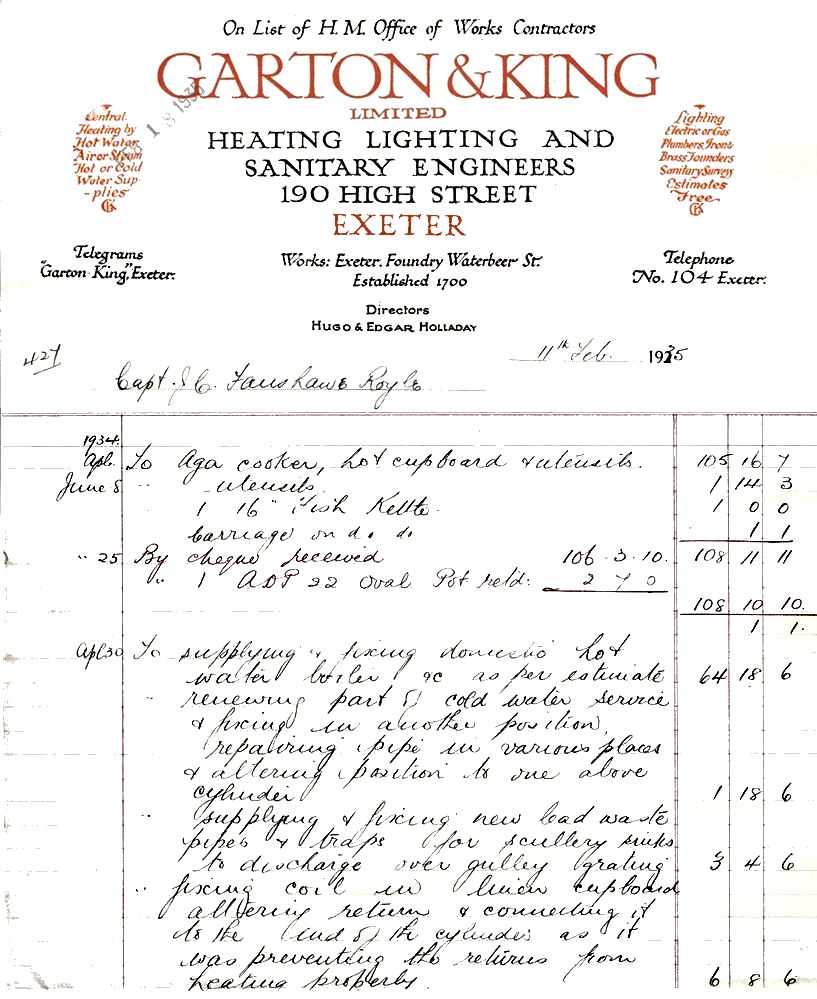 On List of H. M. Office of Works Contractors
GARTON & KING
LIMITED
HEATING LIGHTING AND
SANITARY ENGINEERS
190 HIGH STREET
EXETER
Central
Heating by
Hot Water
Air or Steam
Hot or Cold
Water Sup
-plies
GK
18 1935
Lighting
Electric or Gas
Plumbers, Iron &
Brass Founders
Sanitary Surveys
Estimates
Free
GK
Telegrams
"Garton King", Exeter.
Works: Exeter. Foundry Waterbeer St.
Established 1700
Telephone
No. 104 Exeter.
Directors
HUGO & EDGAR HOLLADAY
427
11th Feb. 1935
Capt. J. C. Fanshawe Royle
1934.
Apl. To Aga cooker, hot cupboard & utensils. 105 16 7
June 8 " utensils 1 14 3
1 16" Fish Kettle 1 0 0
Carriage on do. do. 1 1
" 25 By cheque received 106. 3. 10. 108 11 11
" 1 ADP 22 Oval Pot retd: 2 7 0
108 10 10.
1 1.
Apl 30 To supplying & fixing domestic hot
water boiler &c as per estimate 64 18 6
" renewing part of cold water service
& fixing in another position,
repairing pipe in various places
& altering position to one above
cylinder 1 18 6
" supplying & fixing new lead waste
pipes & traps for scullery sinks
to discharge over gulley grating 3 4 6
" fixing coil in linen cupboard
altering return & connecting it
to the end of the cylinder as it
was preventing the returns from
heating properly. 6 8 6